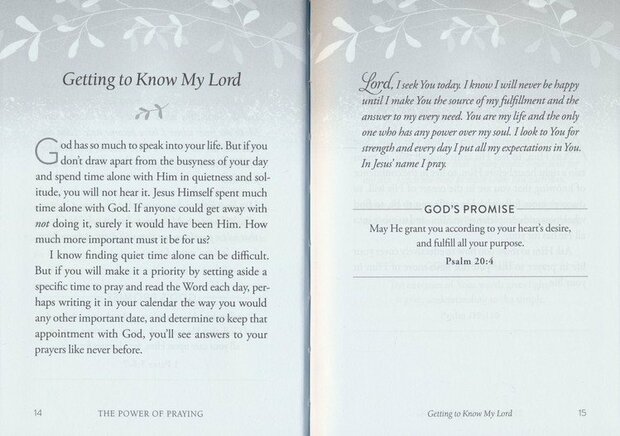 Getting to Know My Lord
God has so much to speak into your life. But if you
don't draw apart from the busyness of your day
and spend time alone with Him in quietness and sol-
itude, you will not hear it. Jesus Himself spent much
time alone with God. If anyone could get away with
not doing it, surely it would have been Him. How
much more important must it be for us?
I know finding quiet time alone can be difficult.
But if you will make it a priority by setting aside a
specific time to pray and read the Word each day, per-
haps writing it in your calendar the way you would
any other important date, and determine to keep that
appointment with God, you'll see answers to your
prayers like never before.
14 THE POWER OF PRAYING
Lord, I seek You today. I know I will never be happy
until I make You the source of my fulfillment and the
answer to my every need. You are my life and the only
one who has any power over my soul. I look to You for
strength and every day I put all my expectations in You.
In Jesus' name I pray.
GOD'S PROMISE
May He grant you according to your heart's desire,
and fulfill all your purpose.
Psalm 20:4
Getting to Know My Lord 15